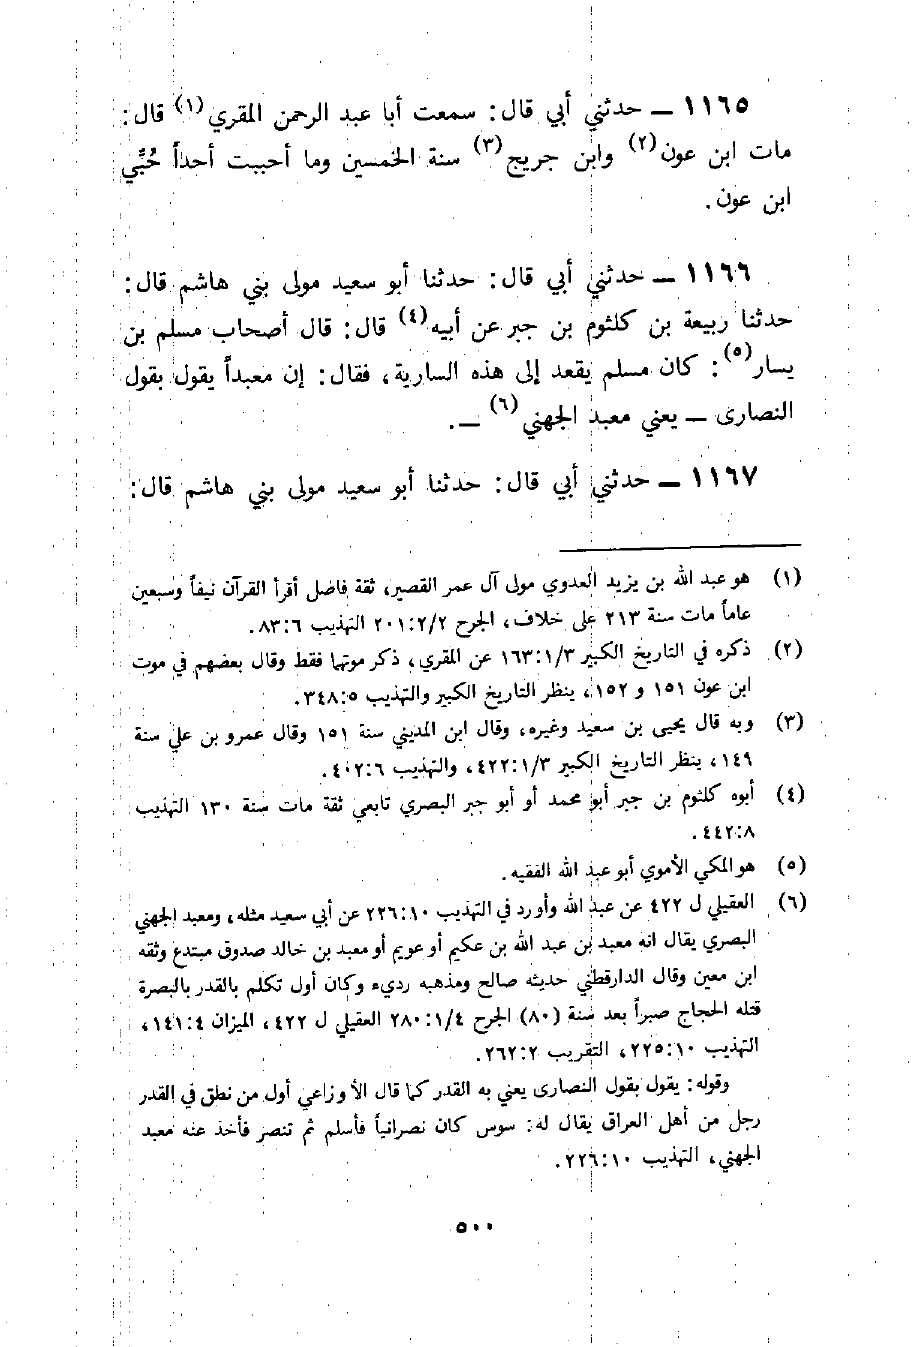 ١١٦٥ ــ حدثني أبي قال: سمعت أبا عبد الرحمن المقري(١) قال:
مات ابن عون(٢) وابن جريج(٣) سنة الخمسين وما أحببت أحداً حُبِّي
ابن عون.
١١٦٦ ــ حدثني أبي قال: حدثنا أبو سعيد مولى بني هاشم قال:
حدثنا ربيعة بن كلثوم بن جبر عن أبيه(٤) قال: قال أصحاب مسلم بن
يسار(٥): كان مسلم يقعد إلى هذه السارية، فقال: إن معبداً يقول بقول
النصارى ــ يعني معبد الجهني(٦) ــ.
١١٦٧ ــ حدثني أبي قال: حدثنا أبو سعيد مولى بني هاشم قال:
(١) هو عبد الله بن يزيد العدوي مولى آل عمر القصير، ثقة فاضل أقرأ القرآن نيفاً وسبعين
عاماً مات سنة ٢١٣ على خلاف، الجرح ٢٠١:٢/٢ التهذيب ٨٣:٦.
(٢) ذكره في التاريخ الكبير ١٦٣:١/٣ عن المقري، ذكر موتهما فقط وقال بعضهم في موت
ابن عون ١٥١ و ١٥٢، ينظر التاريخ الكبير والتهذيب ٣٤٨:٥.
(٣) وبه قال يحيى بن سعيد وغيره، وقال ابن المديني سنة ١٥١ وقال عمرو بن علي سنة
١٤٩، ينظر التاريخ الكبير ٤٢٢:١/٣، والتهذيب ٤٠٢:٦.
(٤) أبوه كلثوم بن جبر أبو محمد أو أبو جبر البصري تابعي ثقة مات سنة ١٣٠ التهذيب
٤٤٢:٨.
(٥) هو المكي الأموي أبو عبد الله الفقيه.
(٦) العقيلي ل ٤٢٢ عن عبد الله وأورد في التهذيب ٢٢٦:١٠ عن أبي سعيد مثله، ومعبد الجهني
البصري يقال انه معبد بن عبد الله بن عكيم أو عويم أو معبد بن خالد صدوق مبتدع وثقه
ابن معين وقال الدارقطني حديثه صالح ومذهبه رديء وكان أول تكلم بالقدر بالبصرة
قتله الحجاج صبراً بعد سنة (٨٠) الجرح ٢٨٠:١/٤ العقيلي ل ٤٢٢، الميزان ١٤١:٤،
التهذيب ٢٢٥:١٠، التقريب ٢٦٢:٢.
وقوله: يقول بقول النصارى يعني به القدر كما قال الأوزاعي أول من نطق في القدر
رجل من أهل العراق يقال له: سوس كان نصرانياً فأسلم ثم تنصر فأخذ عنه معبد
الجهني، التهذيب ٢٢٦:١٠.
٥٠٠